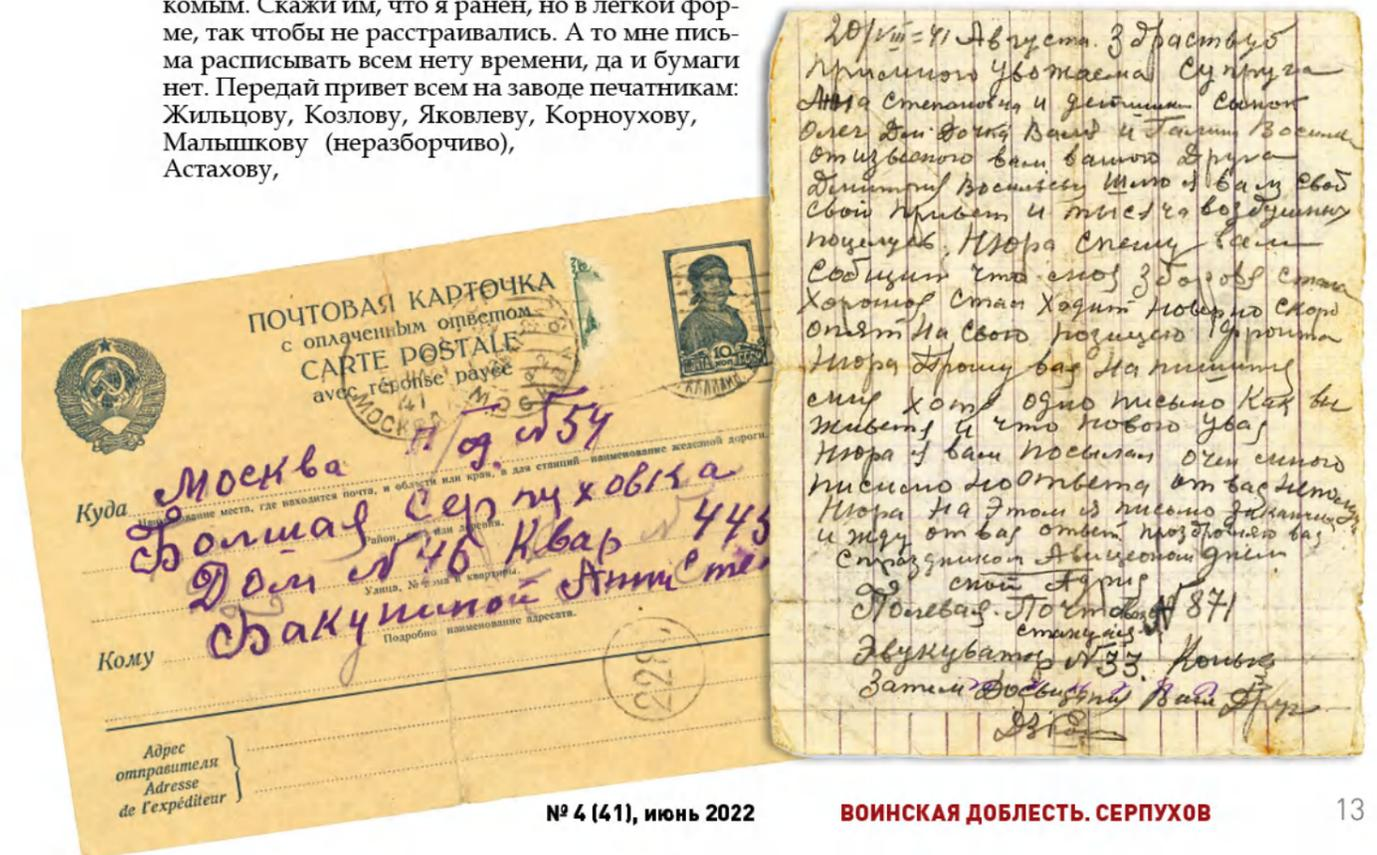 комым. Скажи им, что я ранен, но в легкой фор-
ме, так чтобы не расстраивались. А то мне пись-
ма расписывать всем нету времени, да и бумаги
нет. Передай привет всем на заводе печатникам:
Жильцову, Козлову, Яковлеву, Корноухову,
Малышкову (неразборчиво),
Астахову,
ПОЧТОВАЯ КАРТОЧКА
с оплаченным ответом
CARTE POSTALE
avec réponse payée
МОСКВА
41
10
Куда Москва П/од. №54
Наименование места, где находится почта, и области или края, а для станций—наименование железной дороги.
Большая Серпуховка
Район, село или деревня.
Дом №46 Квар №445
Улица, № дома и квартиры.
Кому Бакуниной Анн Степ
Подробно наименование адресата.
228
Адрес
отправителя
Adresse
de l'expéditeur
20/VIII=41 Августа. Здраствуй
многоуважаема Супруга
Степановна и детишки сынок
Олег Дми дочка Валя и Галина
от извесного вам вашого Друга
Дмитрия Васильевич Шлю я вам свой
свой привет и тысяча воздушных
поцелуев. Нюра Спешу вам
Сообщит что моя здоровя стала
Хорошоя Стал Ходит наверно скоро
опят на свою розицию фронта
Нюра Прошу вас На пишитя
мня хотя одно письмо Как вы
живетя и что нового у вас
Нюра я вам посылал очен много
писмо но ответа от вас не получ
Нюра На Этом я письмо заканчи
и жду от вас ответ проздровляю вас
с праздником Авиционом днем
мой Адрис
Полевая. Почтовая №871
станция
Эвукуватор №33. Конец
Затем Досвидания Ваш Друг
№ 4 (41), июнь 2022
ВОИНСКАЯ ДОБЛЕСТЬ. СЕРПУХОВ
13